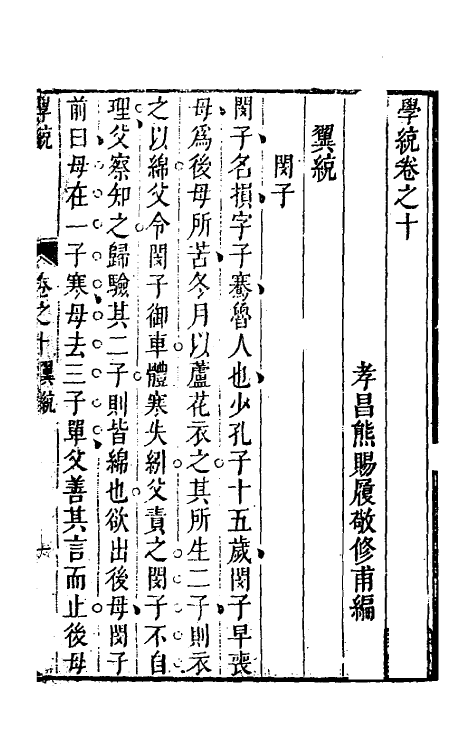 學統卷之十
孝昌熊賜履敬修甫編
翼統
閔子
閔子名損字子騫魯人也少孔子十五歲閔子早喪
母爲後母所苦冬月以蘆花衣之其所生二子則衣
之以綿父令閔子御車體寒失紖父責之閔子不自
理父察知之歸驗其二子則皆綿也欲出後母閔子
前曰母在一子寒母去三子單父善其言而止後母
學統
卷之十翼統